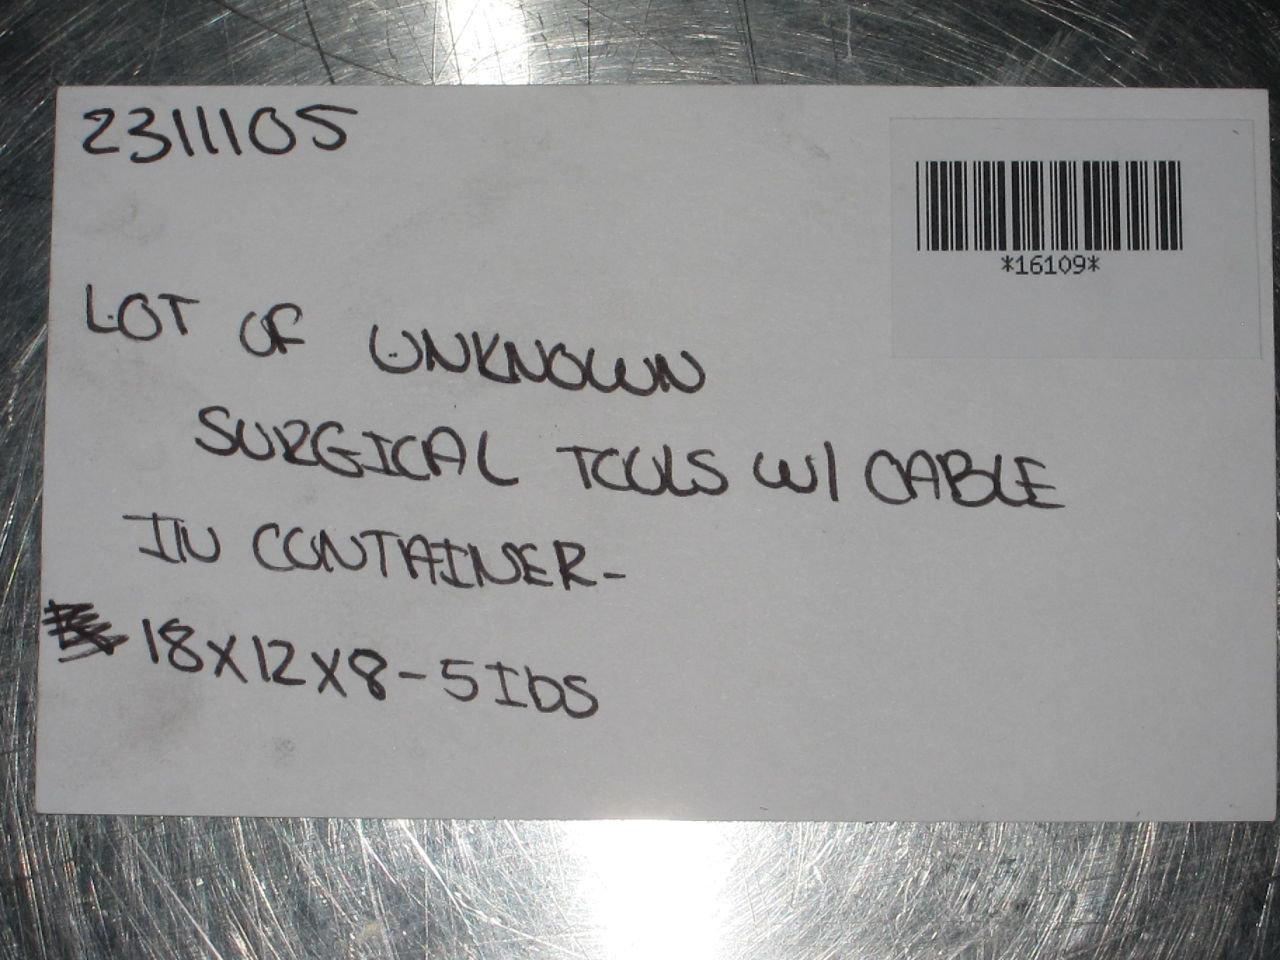 2311105
*16109*
LOT OF UNKNOWN
SURGICAL TOOLS W/ CABLE
IN CONTAINER-
18X12X8-5lbs